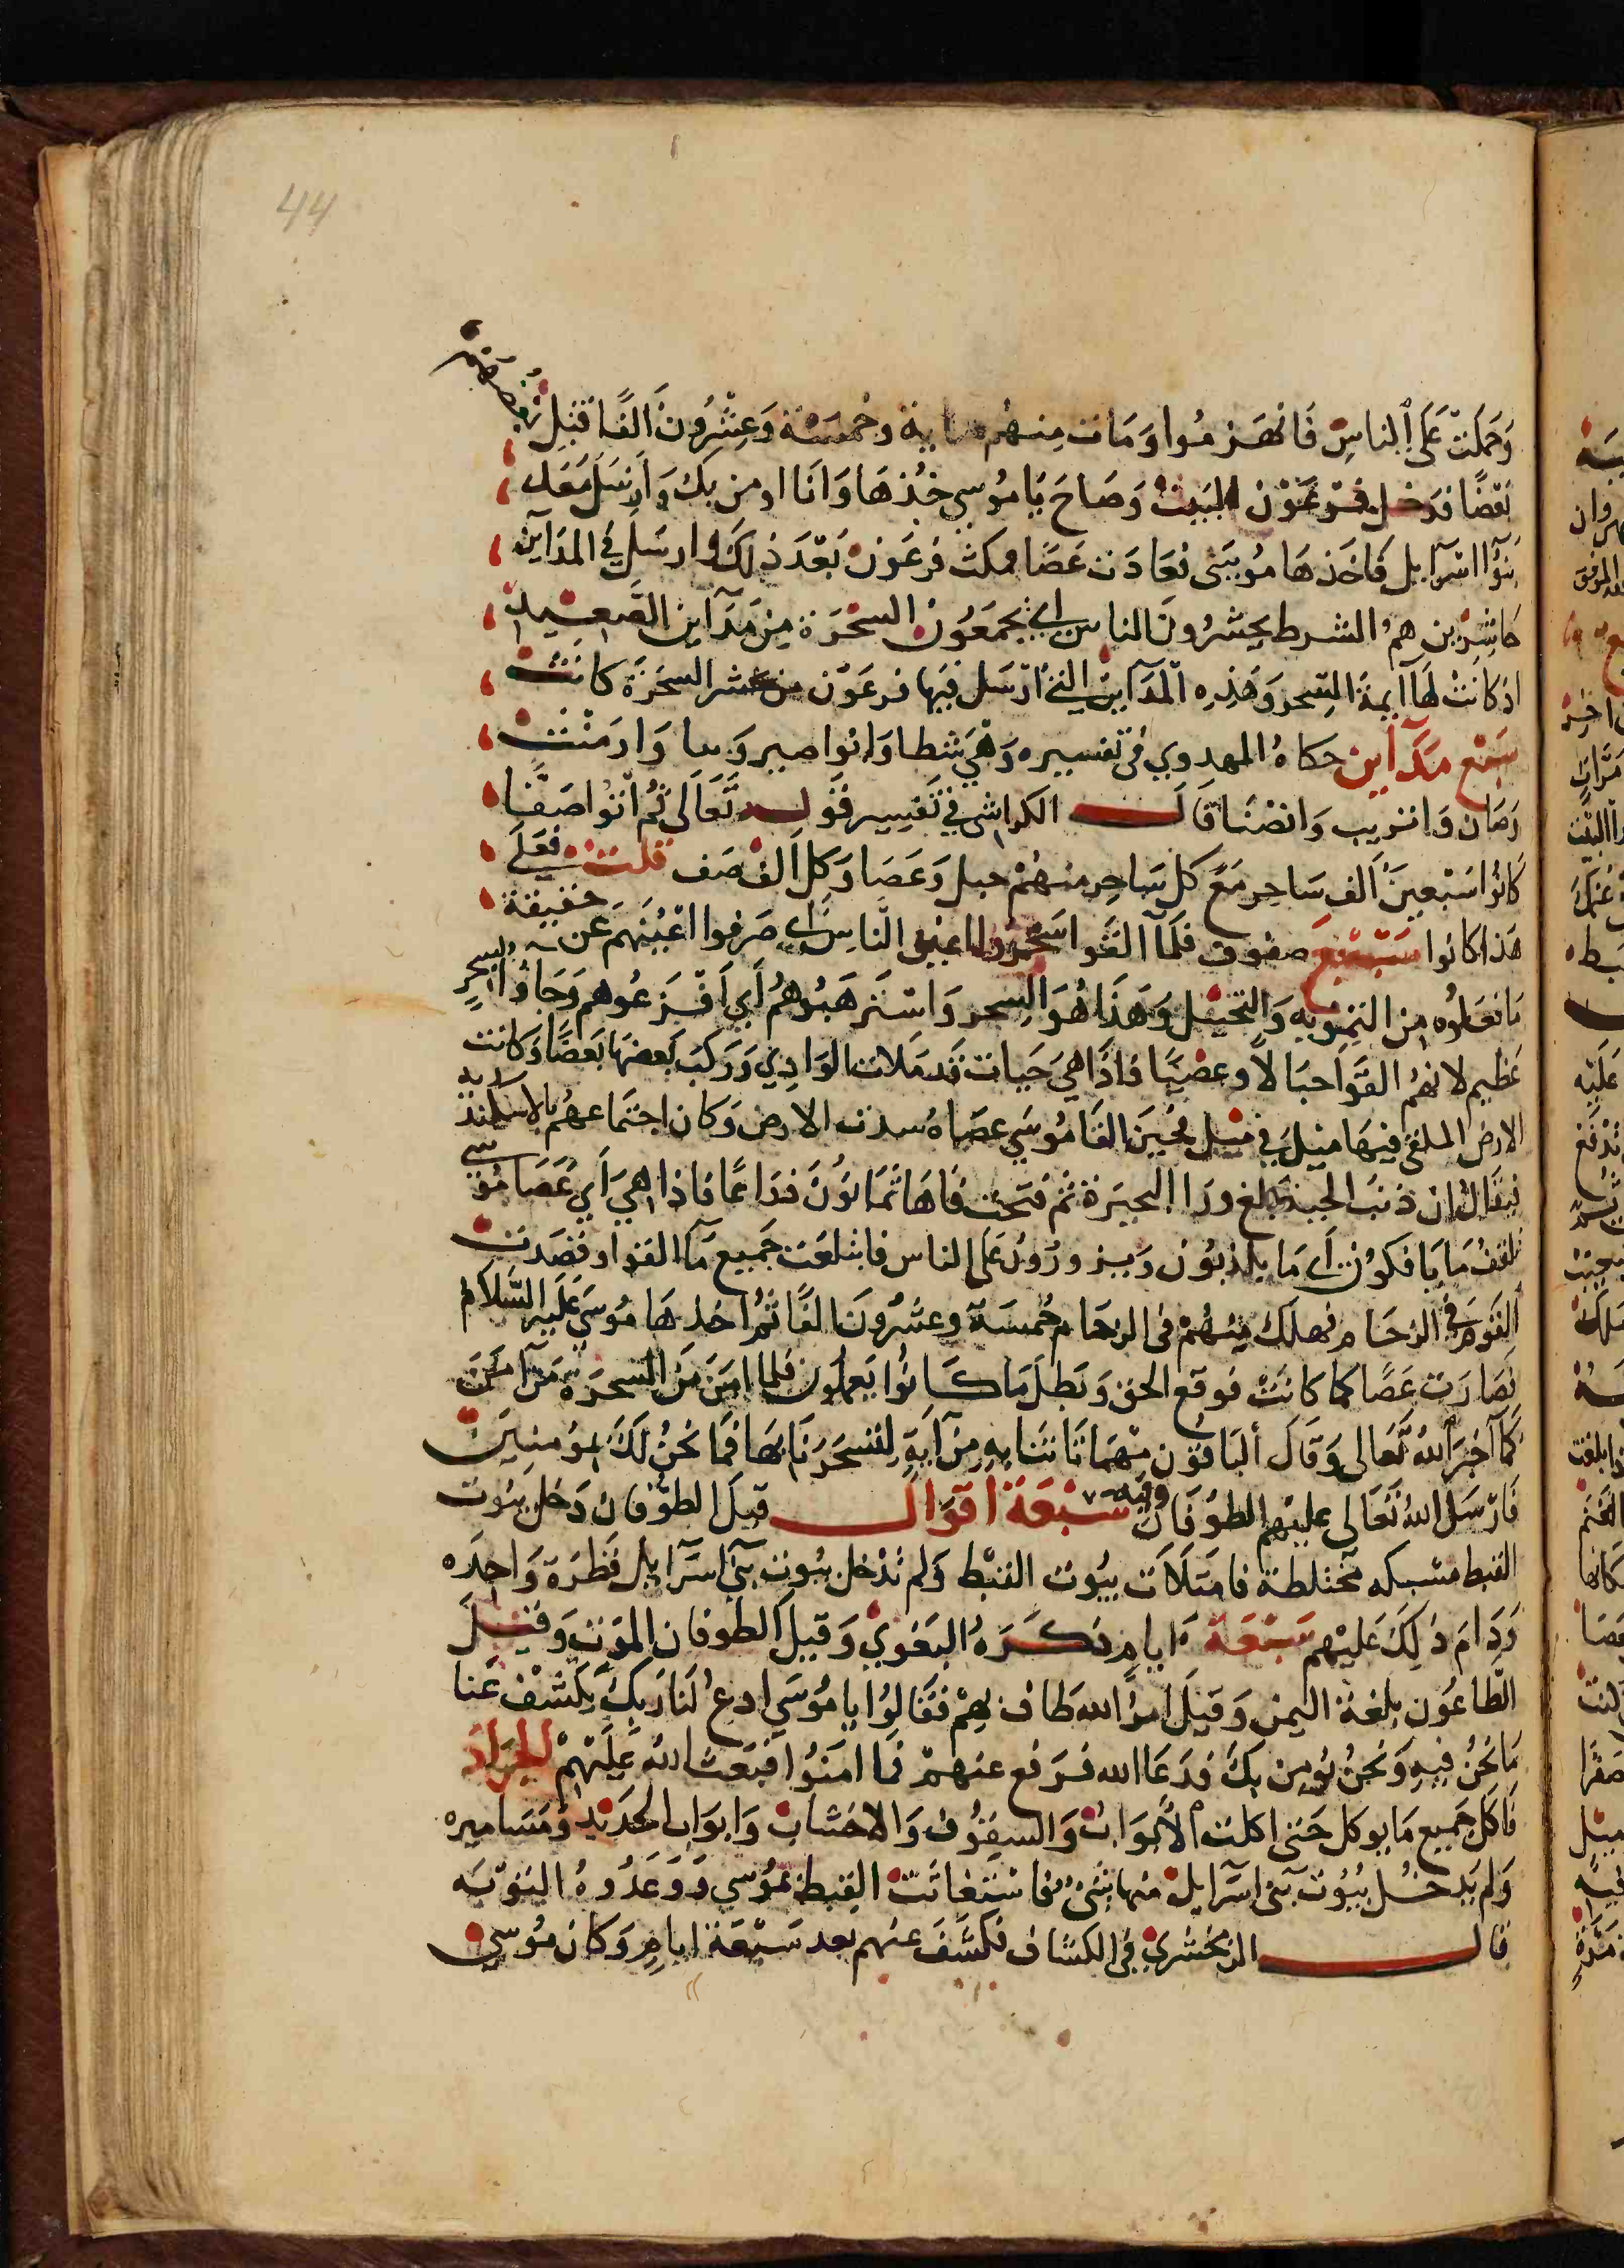 44
وَحَمَلَتْ عَلَى الناسِ فَانهَزمُوا وَمَات مِنهُم ماية وخمسَة وَعِشْرُونَ الفًا قَتِل بَعضهم
بَعْضًا فدَخل فرعَوْن البَيتْ وَصَاحَ يَا موُسى خُذهَا وَانَا اومن بك وَارسَل مَعَك
بَنوُا اسرآيل فَاخَذهَا موُسَى فعَادَت عَصَا فمكث فرعَون بَعْدَ ذلك وارسَل في المدَآين
حَاشِرين همُ الشرط يحشرُونَ الناس اي يجمَعوُن السحَرَة مِن مَدَآين الصَعيد
اذ كانَتْ لهَا ايمة السِحر وَهَذِه المَدَآين التي ارْسَل فيهَا فرعَوْن من حشر السحَرَة كانَتْ
سَبْع مَدَآين حكاهُ المهدوي في تفسيره وَهْيَ شطا وَابوا صير وَسا وَارمَنتْ
وَانْصَنَا قَالَ الكواشي في تَفسِير قَولِه تَعَالى ثم ائتُوا صَفًّا
كَانوُا سَبْعينَ اَلف سَاحِر مَعَ كل سَاحِر منهُمْ حبل وَعَصَا وَكل الف صَف قلت فعَلَى
هَذا كانوا سَبْعين صفوف فلمآ القَوا سَحَرُوا اعين النّاسِ اي صَرفوا اعْيُنَهم عن حَقيقة
مَا فعَلُوُه مِن التمويه وَالتخيل وَهَذَا هُوَ السِحر وَاسْتَرهَبُوهُمْ أي اَفْزَعُوهم وَجَاوُا بسِحرٍ
عَظيم لانهُم القَوا حبَالاً وعصِيًا فاذَا هيَ حَيات قَد مَلات الوَادِي وَرَكبَ بَعضهَا بَعضًا وَكانت
الارض الملقى فيهَا ميْل في ميْل فحِين القَا موُسَي عصَاهُ سدت الارض وَكان اجتماعهُم بالاسكندرية
فيقَال ان ذنبَ الحية بلغ ورَا البحيَرة ثم فتَحَت فَاهَا ثمَانوُن ذرَاعًا فاذا هيَ اَي عَصَا موُسي
تلقفُ مَا يَافكوُن اي مَا يكذبوُن وَيزورُون على الناس فابتلعَت جَميع مَا القوا وقصَدت
القَومَ في الزحَام فهلَك مِنهُمْ في الزحَام خمسَة وعشرُونَ الفًا ثمُ اخذهَا موُسَى عَليه السَّلام
فصَارَت عَصًا كمَا كانَتْ فوقع الحق وَبَطل مَا كَانوُا يَعملوُن فلما امَن مَن السحَرَة مَن آمَنَ
كمَا اَخبَر اللهُ تعَالى وَقَالَ اَلبَاقوُن مهمَا تَاتنَا بِهِ مِن آيةٍ لِتسحَرنَا بهَا فَمَا نحنُ لَكَ بموُمنِينَ
فَارْسَل اللهُ تَعَالى عليْهم الطوُفَان وفيه سَبْعَة اَقوَال قيلَ الطوُفان دَخل بيُوت
القبط مشبكه مختلطة فامتَلاَت بيُوت القبْط وَلم تدْخل بيُوت بَني اسرآيل قطرَة وَاحِدَه
وَدَامَ ذلِكَ عَليْهم سَبْعَة اَيامٍ ذكرَهُ البَغوي وَقيلَ الطوفان الموْت وَقيل
الطّاعُون بلغة اليمن وَقيلَ امرُ الله طاف بهمْ فقَالوُا يا موُسَي ادعُ لنَا رَبكَ يكشف عَنا
مَا نحُن فيهِ وَنحن نوُمِن بك فدَعَا الله فرَفع عنهمْ فما امنوُا فبَعث الله عَلَيْهمْ الجرَادَ
فاكل جَميع مَا يوكل حَتى اكلت الاَبوَابُ وَالسقوُف وَالاخشاب وَابوَاب الحَديد وَمَسَاميره
وَلم يَدخُل بيُوُت بَني اسرآيل منهَا شَيْءُ فاستغاثت القبط بموُسي وَوَعَدُوهُ التوْبَه
قال الزمخشري في الكشاف فكشَفَ عنهم بعد سَبْعَة ايامٍ وَكان موُسي